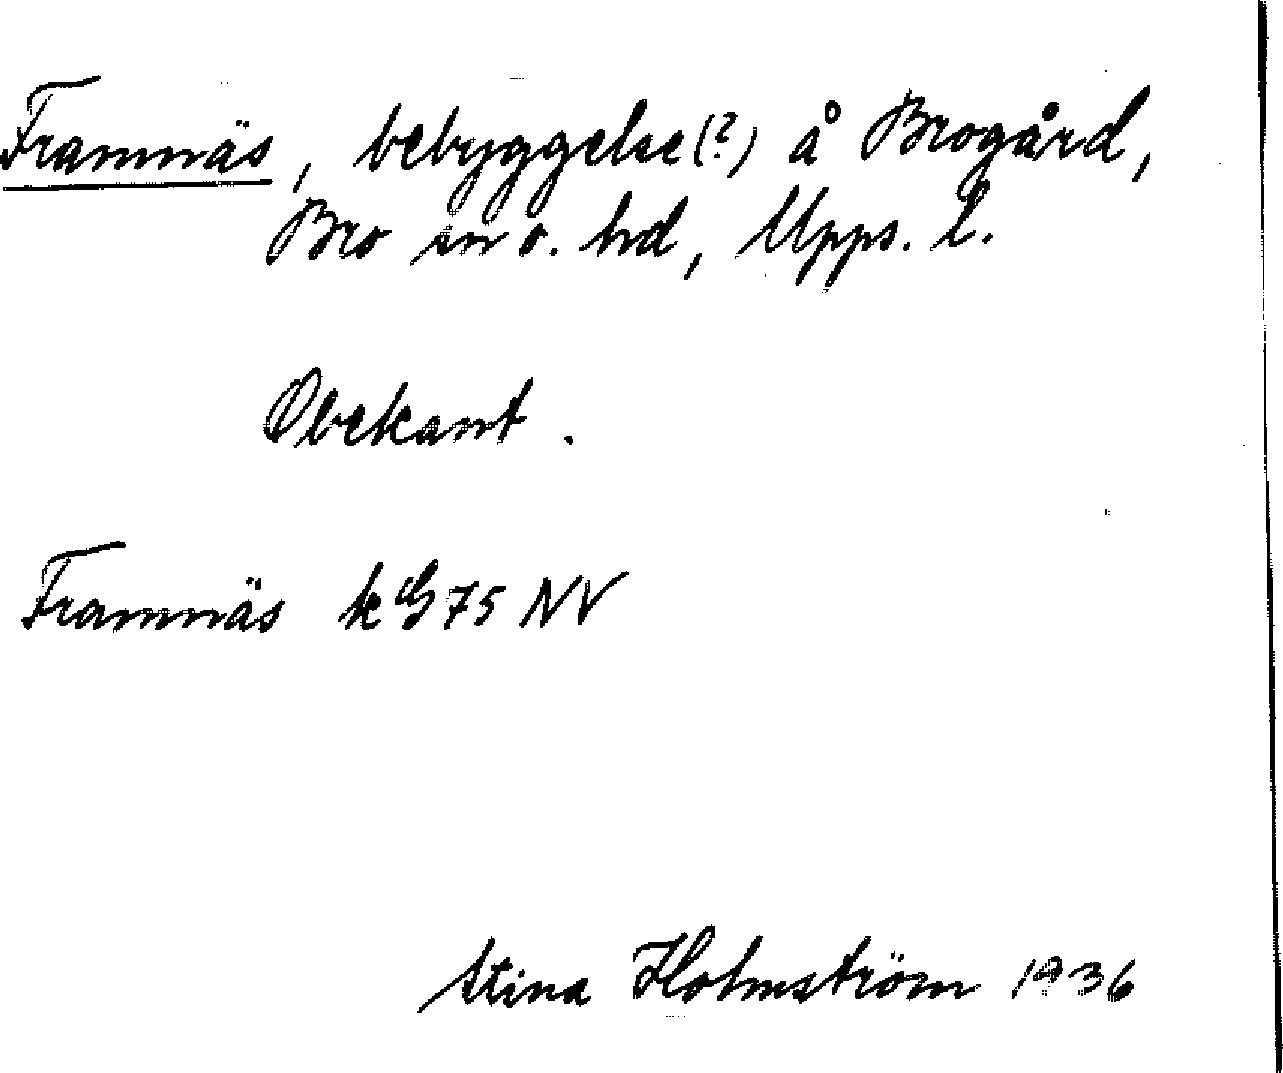 Framnäs, bebyggelse (?) å Brogård,
Bro sn o. hd, Upps. l.
Obekant.
Framnäs k G 75 NV
Stina Holmström 1936